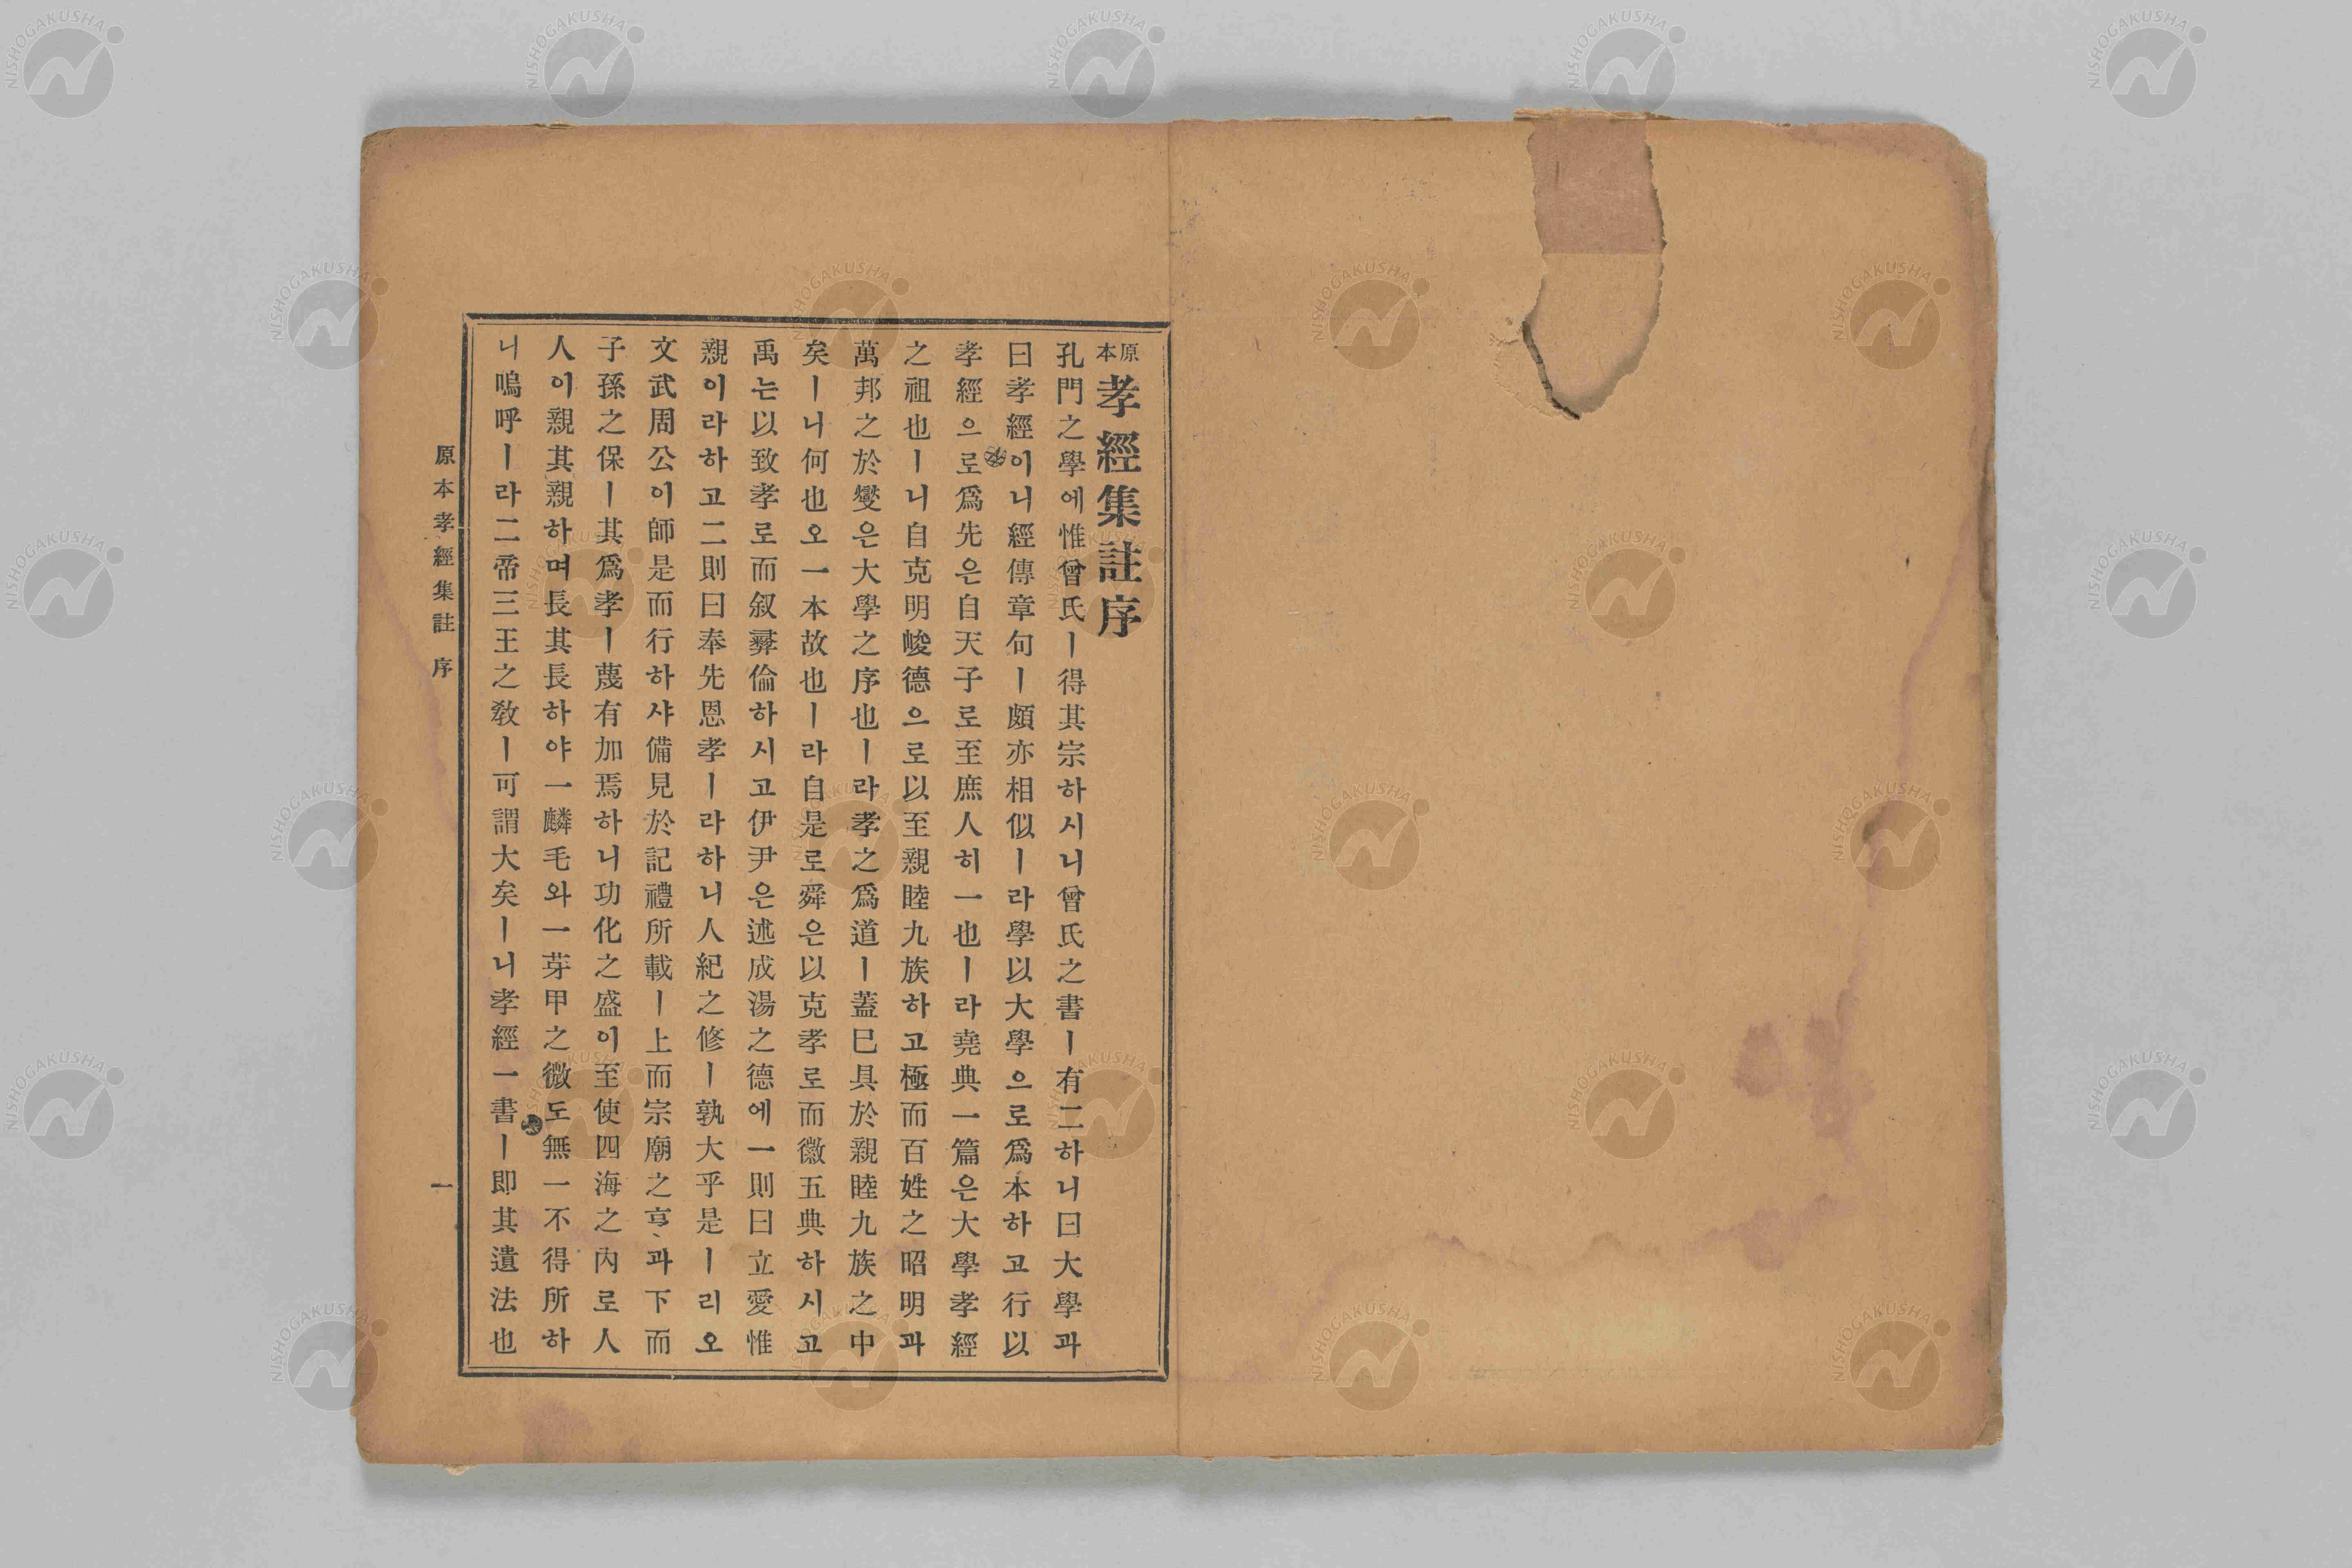 原本孝經集註序
孔門之學에惟曾氏ㅣ得其宗하시니曾氏之書ㅣ有二하니曰大學과
曰孝經이니經傳章句ㅣ頗亦相似ㅣ라學以大學으로爲本하고行以
孝經으로爲先은自天子로至庶人히一也ㅣ라堯典一篇은大學孝經
之祖也ㅣ니自克明峻德으로以至親睦九族하고極而百姓之昭明과
萬邦之於變은大學之序也ㅣ라孝之爲道ㅣ蓋已具於親睦九族之中
矣ㅣ니何也오一本故也ㅣ라自是로舜은以克孝로而徽五典하시고
禹는以致孝로而叙彛倫하시고伊尹은述成湯之德에一則曰立愛惟
親이라하고二則曰奉先思孝ㅣ라하니人紀之修ㅣ孰大乎是ㅣ리오
文武周公이師是而行하샤備見於記禮所載ㅣ上而宗廟之享과下而
子孫之保ㅣ其爲孝ㅣ蔑有加焉하니功化之盛이至使四海之內로人
人이親其親하며長其長하야一麟毛와一芽甲之微도無一不得所하
니嗚呼ㅣ라二帝三王之敎ㅣ可謂大矣ㅣ니孝經一書ㅣ卽其遺法也
原本孝經集註 序
一
NISHOGAKUSHA